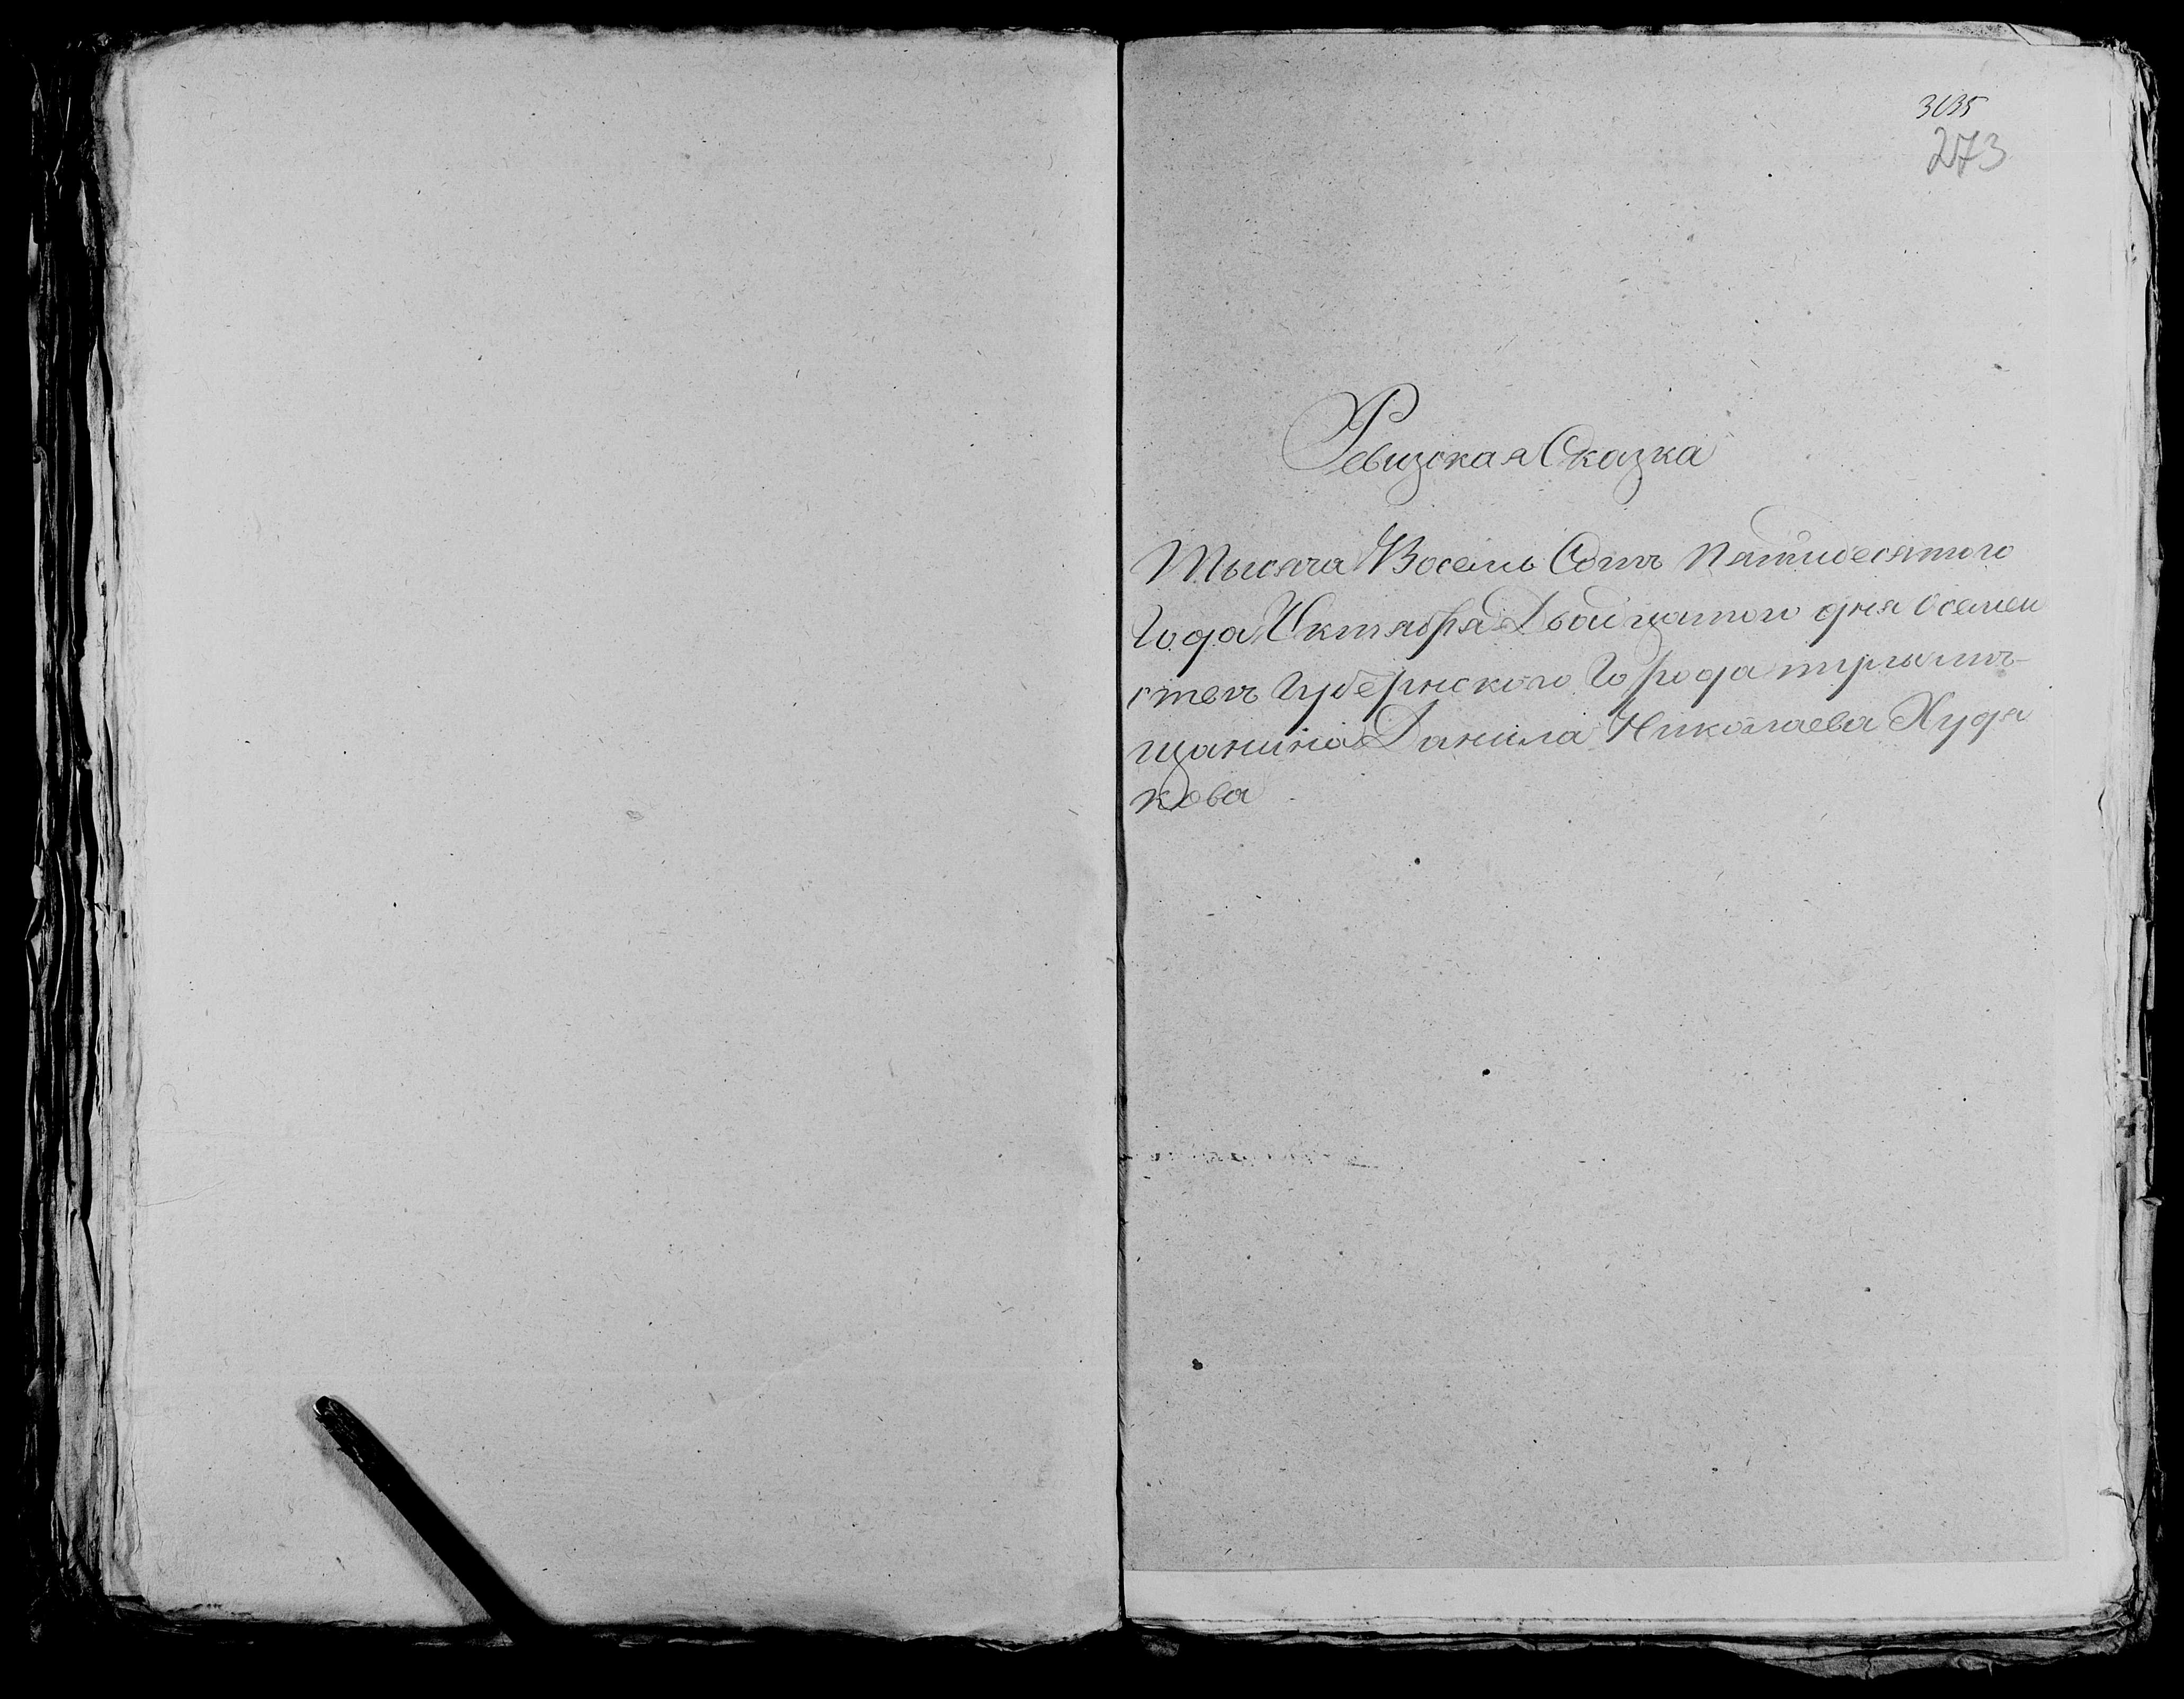 3035
273
Ревизская Сказка
Тысяча Восемь Сотъ пятидесятого
Года Октября Двадцатого дня о семей
ствѣ Губернского Города
щанина Данила Николаева Худя
кова